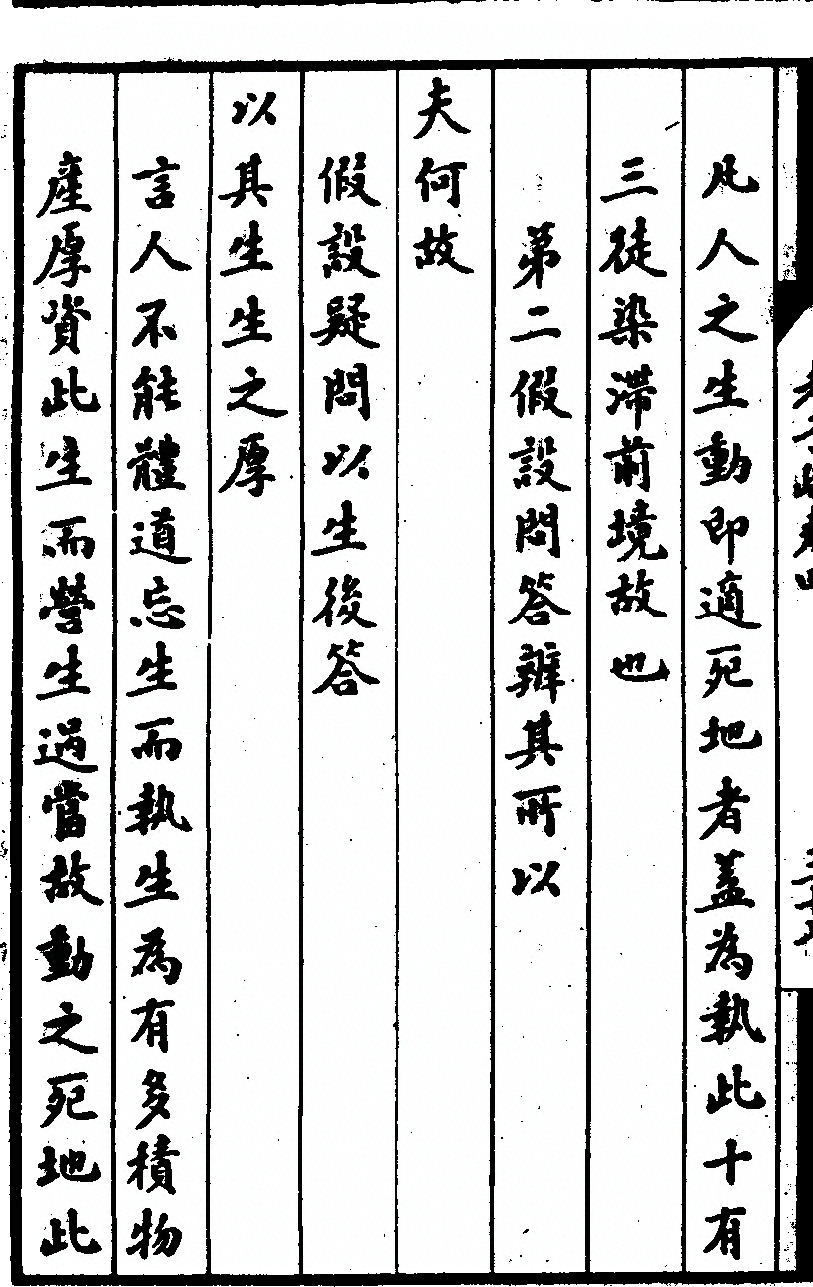 凡人之生動即適死地者蓋為執此十有
三徒染滯前境故也
第二假設問答辯其所以
夫何故
假設疑問以生後答
以其生生之厚
言人不能體道忘生而執生為有多積物
產厚資此生而營生過當故動之死地此